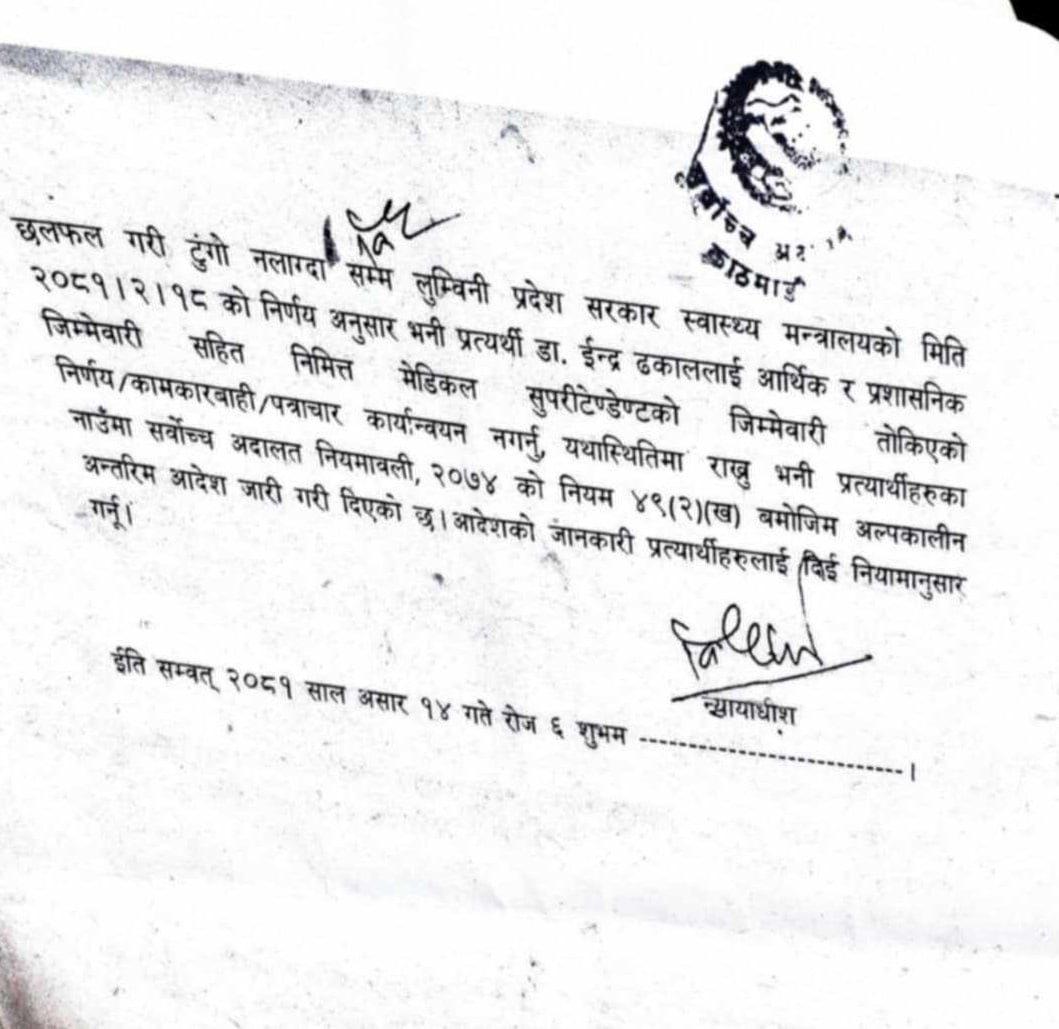 सर्वोच्च
काठमाडौं
छलफल गरी टुंगो नलाग्दा सम्म लुम्विनी प्रदेश सरकार स्वास्थ्य मन्त्रालयको मिति
२०८१।२।१८ को निर्णय अनुसार भनी प्रत्यर्थी डा. ईन्द्र ढकाललाई आर्थिक र प्रशासनिक
जिम्मेवारी सहित निमित्त मेडिकल सुपरीटेण्डेण्टको जिम्मेवारी तोकिएको
निर्णय/कामकारबाही/पत्राचार कार्यान्वयन नगर्नु, यथास्थितिमा राख्नु भनी प्रत्यार्थीहरुका
नाउँमा सर्वोच्च अदालत नियमावली, २०७४ को नियम ४९(२)(ख) बमोजिम अल्पकालीन
अन्तरिम आदेश जारी गरी दिएको छ। आदेशको जानकारी प्रत्यार्थीहरुलाई दिई नियामानुसार
गर्नू।
न्यायाधीश
ईति सम्वत् २०८१ साल असार १४ गते रोज ६ शुभम -----------------------------।